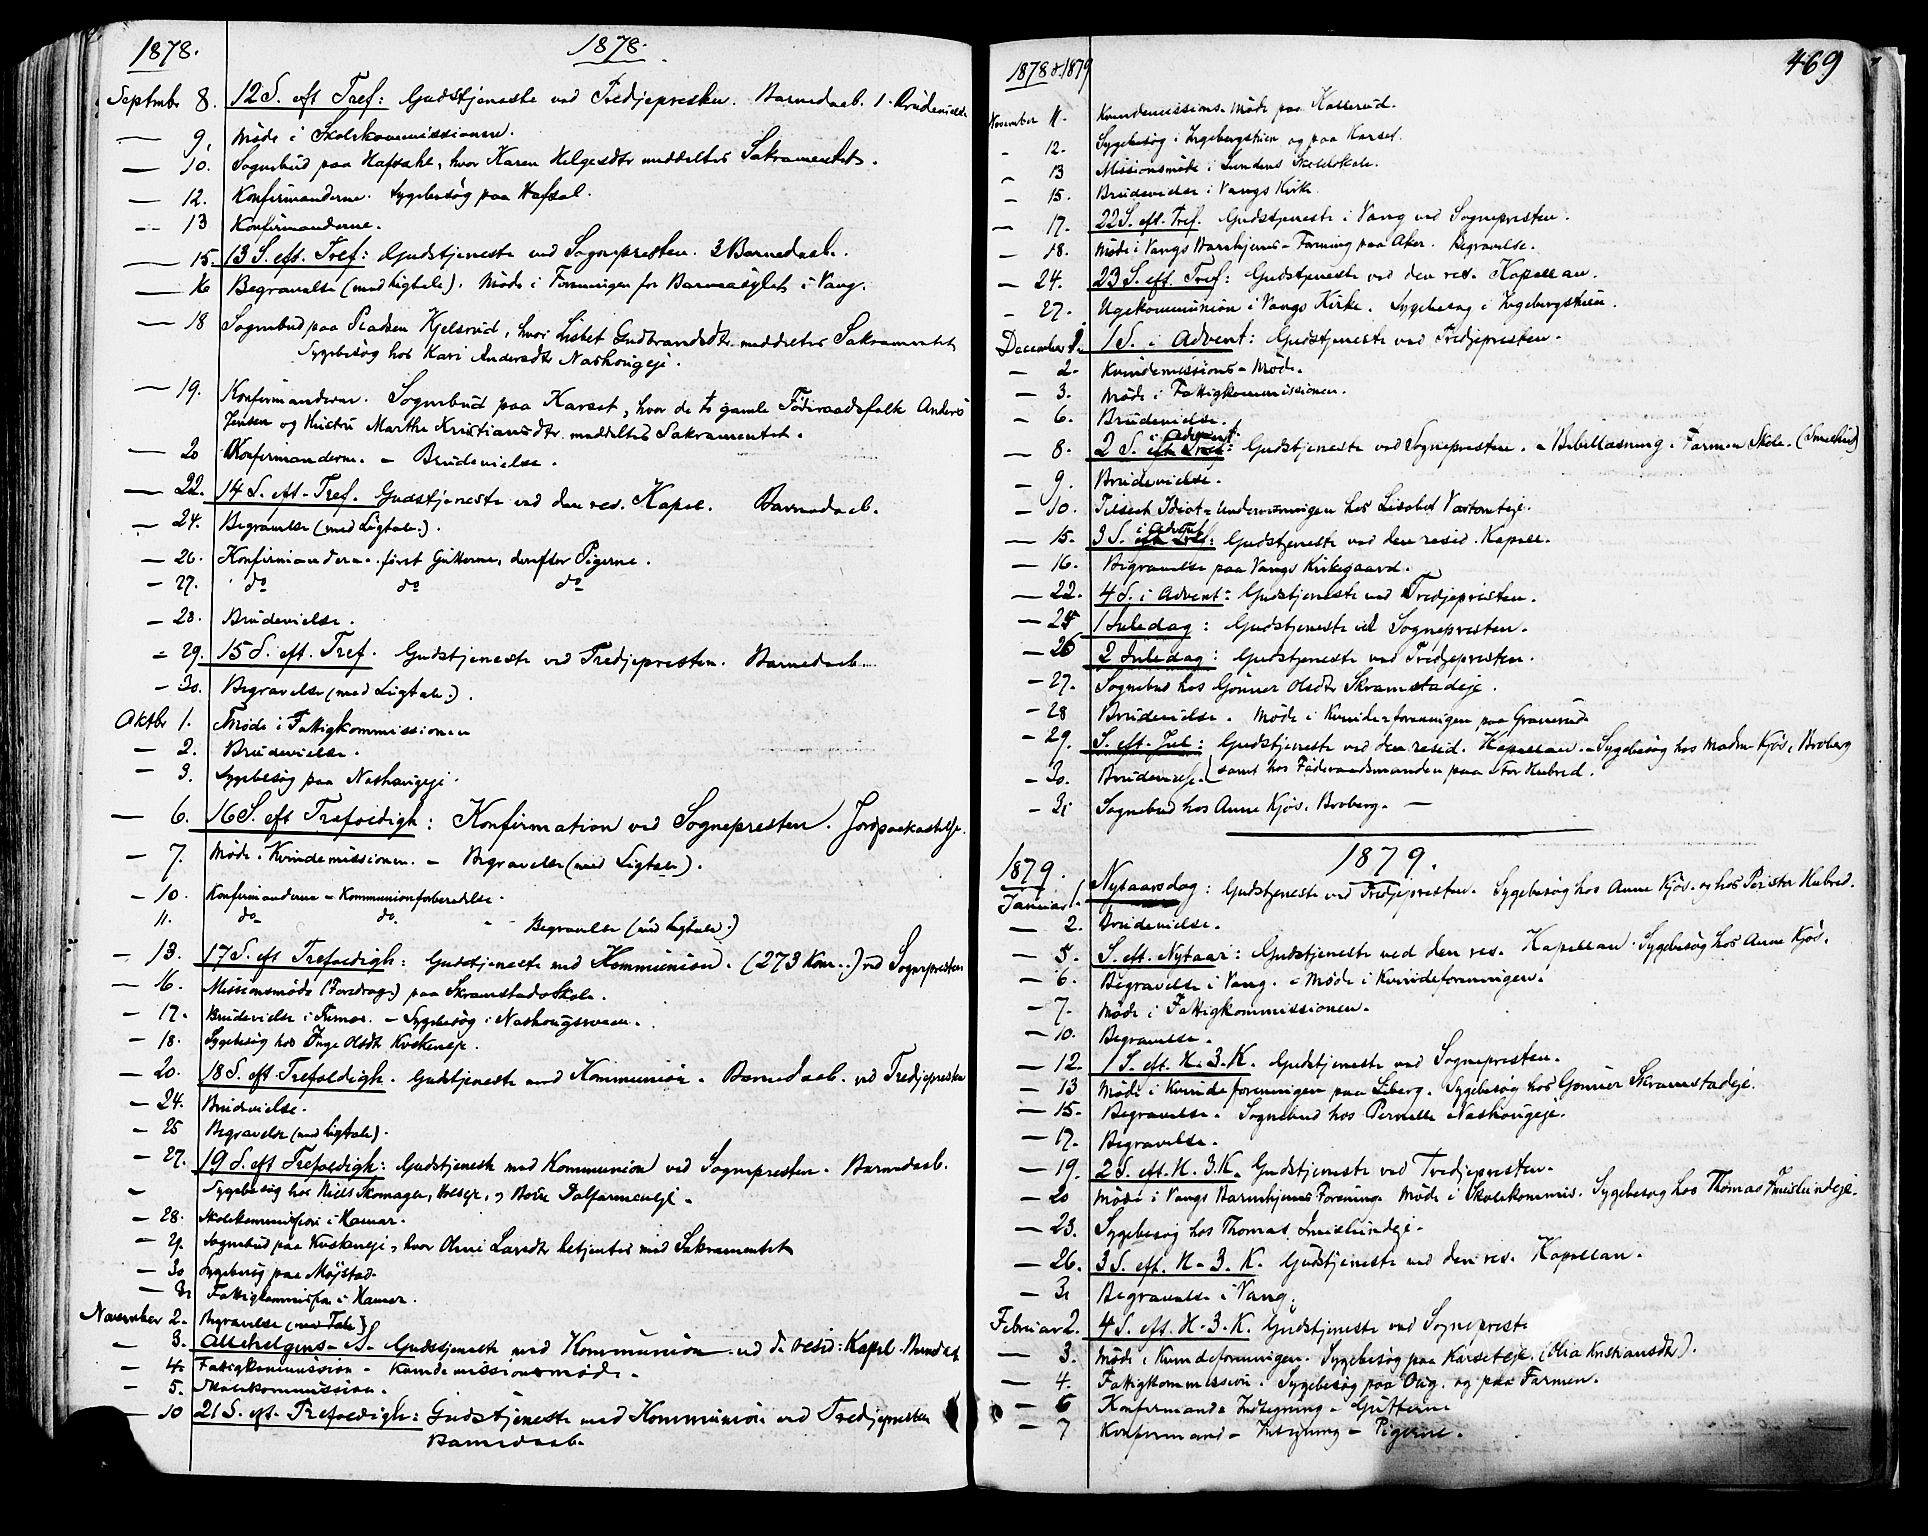 1878. 1878.
Septmbr 8. 12 S. eft Tref: Gudstjeneste ved Tredjepresten. Barnedaab. 1. Brudevielse
— 9, Møde i Skolekommissionen.
— 10. Sognebud paa Hafsahl, hvor Karen Helgesdtr meddeltes Sakramentet.
— 12. Konfirmanderne. Sygebesøg paa Hafsal.
— 13 Konfirmanderne.
— 15. 13 S. eft. Tref: Gudstjeneste ved Sognepresten. 2 Barnedaab.
— 16 Begravelse (med Ligtale). Møde i Foreningen for Barneasylet i Vang.
— 18 Sognebud paa Pladsen Kjelsrud, hvor Lisbet Gudbrandsdtr meddeltes Sakramentet
Sygebesøg hos Kari Andersdtr Nashougeje.
— 19. Konfirmanderne. Sognebud paa Karset, hvor de to gamle Föderaadsfolk Anders
Jensen og Hustru Marthe Kristiansdtr meddeltes Sakramentet.
— 20 Konfirmanderne. – Brudevielse.
— 22. 14 S. eft. Tref. Gudstjeneste ved den res. Kapel. Barnedaab.
— 24. Begravelse (med Ligtale.)
— 26. Konfirmanderne. först Gutterne, derefter Pigerne.
— 27. do do do
— 28. Brudevielse.
— 29. 15 S. eft. Tref. Gudstjeneste ved Tredjepresten. Barnedaab.
— 30. Begravelse (med Ligtale.)
Oktbr 1. Møde i Fattigkommissionen
— 2. Brudevielse.
— 3. Sygebesøg paa Nashougeje.
— 6. 16 S. eft Trefoldigh: Konfirmation ved Sognepresten. Jordpaakastelse.
— 7. Møde i Kvindemissionen. – Begravelse (med Ligtale).
— 10. Konfirmanderne – Kommunionforberedelse.
11. do do " Begravelse (med Ligtale.)
— 13. 17 S. eft Trefoldigh: Gudstjeneste med Kommunion. (273 Kom..) ved Sognepresten
— 16. Missionsmøde (Foredrag) paa Skramstad Skole.
— 17. Brudevielse i Hamar. – Sygebesøg i Nashougsveen.
— 18. Sygebesøg hos Inge Olsdtr Kvskeneje.
— 20. 18 S. eft. Trefoldigh. Gudstjeneste med Kommunion. Barnedaab. ved Tredjepresten
— 24. Brudevielse.
— 25 Begravelse (med Ligtale).
— 27. 19 S. eft Trefoldigh: Gudstjeneste med Kommunion ved Sognepresten. Barnedaab.
— Sygebesøg hos Niels Skomager, og Dalfarmeneje.
— 28. Skolekommission i Hamar.
— 29. Sognebud paa Kvskeneje, hvor Oline Larsdtr betjentes med Sakramentet
— 30 Sygebesøg paa Møjstad.
— 31 Fattigkommission i Hamar.
November 2. Begravelse (med Tale)
— 3. Allehelgens-S. Gudstjeneste med Kommunion ved d. resid: Kapel. Barnedaab
— 4. Fattigkommission – Kvindemissionsmøde.
— 5. Skolekommission.
— 10 21 S. eft. Trefoldigh: Gudstjeneste med Kommunion ved Tredjepresten
Barnedaab.
469
1878 & 1879
November 11. Kvindemissions-Møde paa Kallerud.
— 12. Sygebesøg i Ingebergstuen og paa Karset.
— 13 Missionsmøde i Lundens Skolelokale.
— 15. Brudevielse i Vangs Kirke.
— 17. 22 S. eft. Tref. Gudstjeneste i Vang ved Sognepresten.
— 18. Møde i Vangs Barnhjems-Forening paa Aker. Begravelse.
— 24. 23 S. eft. Tref: Gudstjeneste ved den res. Kapellan.
— 27. Ugekommunion i Vangs Kirke. Sygebesøg i Ingebergstuen.
December 1. 1 S. i Advent: Gudstjeneste ved Tredjepresten.
— 2. Kvindemissions-Møde.
— 3. Møde i Fattigkommissionen.
— 6. Brudevielse.
— 8. 2 S. i Advent: Gudstjeneste ved Sognepresten. – Bibellæsning i Farmen Skole. (Smedhus)
— 9. Brudevielse.
— 10. Tilseet Idiot-Undervisningen hos Lisabet Vaatomteje.
— 15. 3 S. i Advent: Gudstjeneste ved den resid. Kapell.
— 16. Begravelse paa Vangs Kirkegaard.
— 22. 4 S. i Advent: Gudstjeneste ved Tredjepresten.
— 25 1 Juledag: Gudstjeneste ved Sognepresten.
— 26 2 Juledag: Gudstjeneste ved Tredjepresten.
— 27. Sognebud hos Gönner Olsdtr Skramstadeje.
— 28 Brudevielse. Møde i Kvindeforeningen paa Granerud.
— 29. S. eft. Jul: Gudstjeneste ved den resid. Kapellan. – Sygebesøg hos Madm Kjøs, Broberg
— 30. Brudevielse. (samt hos Föderaadsmanden paa Stor Hubred.
— 31 Sognebud hos Anne Kjøs. Broberg. —
1879. 1879.
Januar 1. Nytaarsdag: Gudstjeneste ved Tredjepresten. Sygebesøg hos Anne Kjøs. og hos Hubred.
— 2. Brudevielse.
— 5. S. eft. Nytaar: Gudstjeneste ved den res. Kapellan. Sygebesøg hos Anne Kjøs.
— 6. Begravelse i Vang. – Møde i Kvindeforeningen.
— 7. Møde i Fattigkommissionen.
— 10. Begravelse.
— 12. 1 S. eft. H. 3. K. Gudstjeneste ved Sognepresten.
— 13 Møde i Kvindeforeningen paa Liberg. Sygebesøg hos Gönner Skramstadeje.
— 15. Begravelse. Sognebud hos Pernelle Nashougeje.
— 17. Begravelse.
— 19. 2 S. eft. H. 3. K. Gudstjeneste ved Tredjepresten.
— 20 Møde i Vangs Barnhjems Forening. Møde i Skolekommis. Sygebesøg hos Thomas Imislundeje.
— 23. Sygebesøg hos Thomas Imislundeje.
— 26. 3 S. eft. H. 3. K. Gudstjeneste ved den res. Kapellan.
— 31 Begravelse i Vang.
Februar 2. 4 S. eft. H. 3. K. Gudstjeneste ved Sogneprest
— 3. Møde i Kvindeforeningen. Sygebesøg paa Karseteje (Olia Kristiansdtr).
— 4. Fattigkommission. Sygebesøg paa By. og paa Farmen.
— 6 Konfirmand- Indtegning – Gutterne
— 7 Konfirmand – Indtegning – Pigerne.